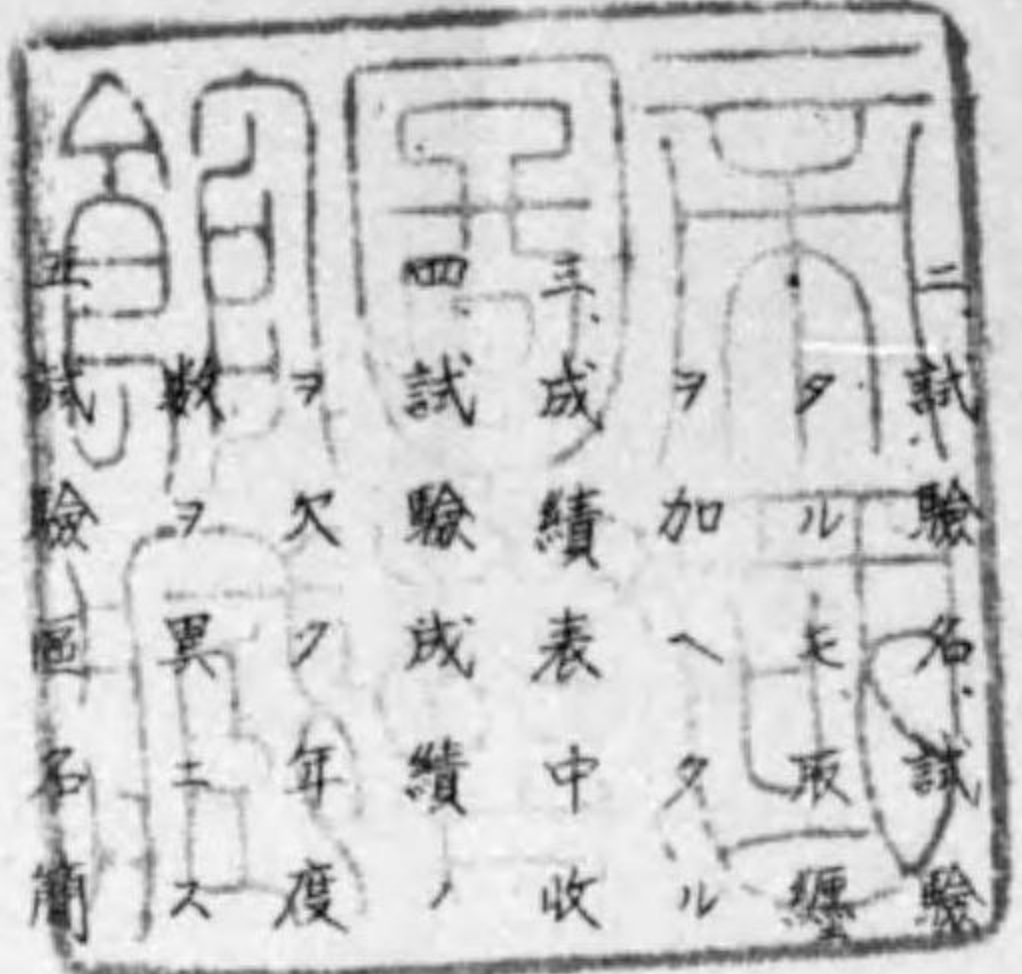 二、試驗名、試驗
タルモ、取纒
ヲ加ヘタル
三、成績表中收
四、試驗成績ノ
ヲ欠ク年度
数ヲ異ニス
五、試驗區名簡